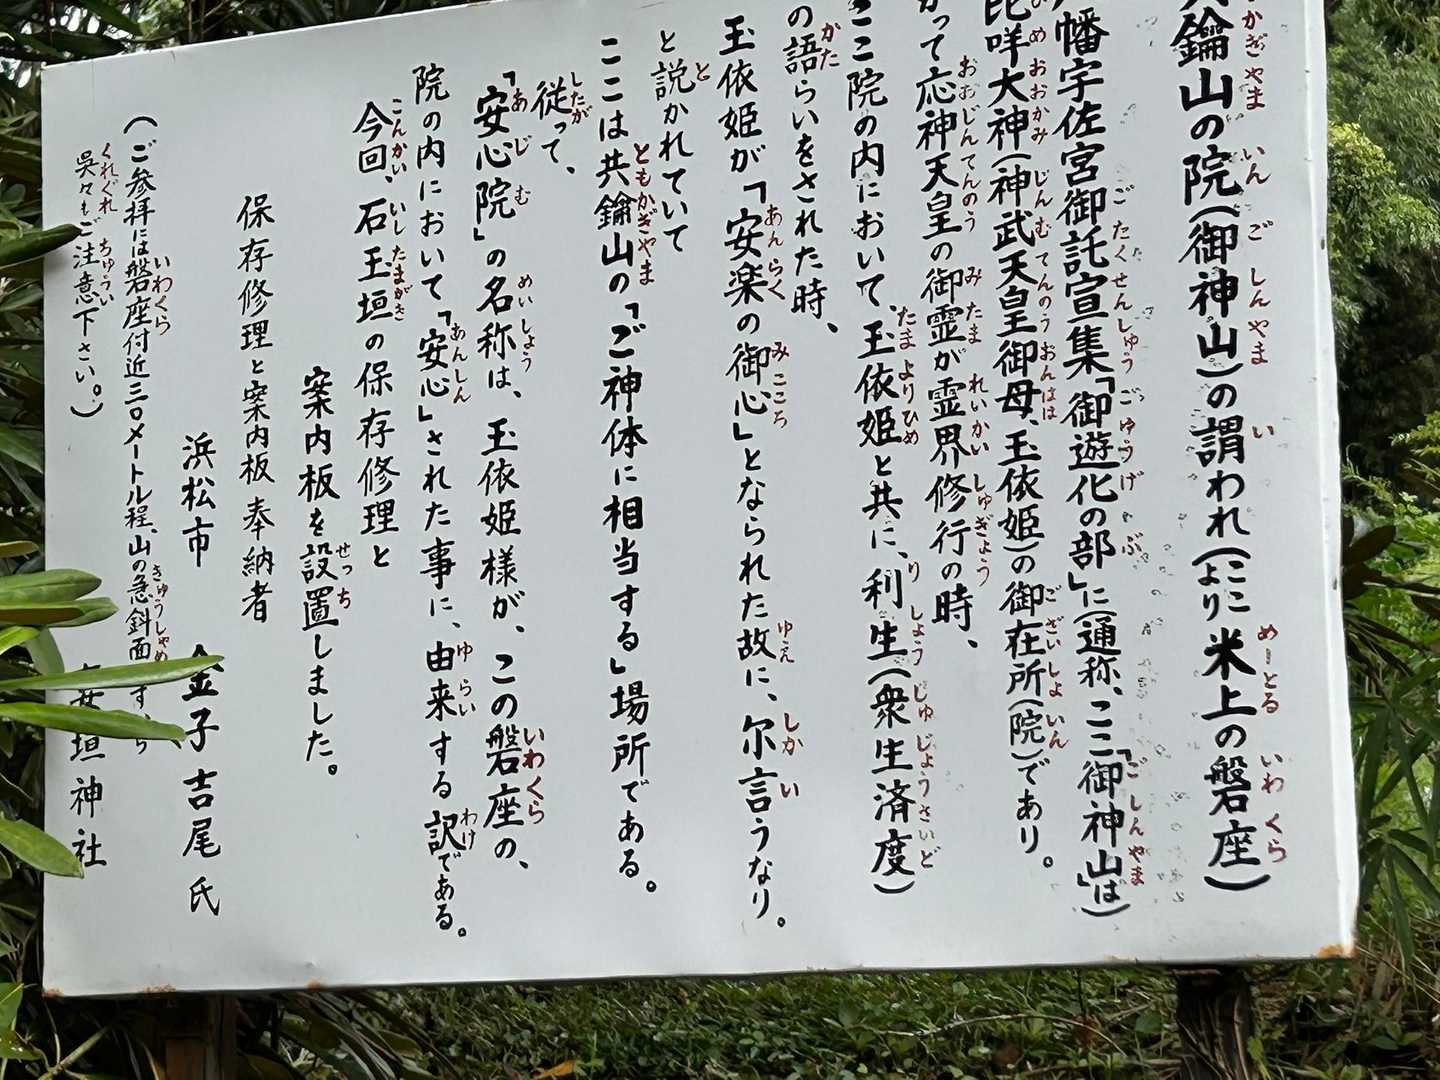 鑰山の院(御神山)の謂われ(ここより米上の磐座)
幡宇佐宮御託宣集「御遊化の部」に(通称、ここ「御神山」は)
比咩大神(神武天皇御母、玉依姫)の御在所(院)であり。
かって応神天皇の御霊が霊界修行の時、
ここ院の内において、玉依姫と共に、利生(衆生済度)
の語らいをされた時、
玉依姫が「安楽の御心」となられた故に、尔言うなり。
と説かれていて
ここは共鑰山の「ご神体に相当する」場所である。
従って、
「安心院」の名称は、玉依姫様が、この磐座の、
院の内において「安心」された事に、由来する訳である。
今回、石玉垣の保存修理と
案内板を設置しました。
保存修理と案内板奉納者
浜松市 金子吉尾氏
(ご参拝には磐座付近三〇メートル程、山の急斜面
呉々もご注意下さい。)
垣神社